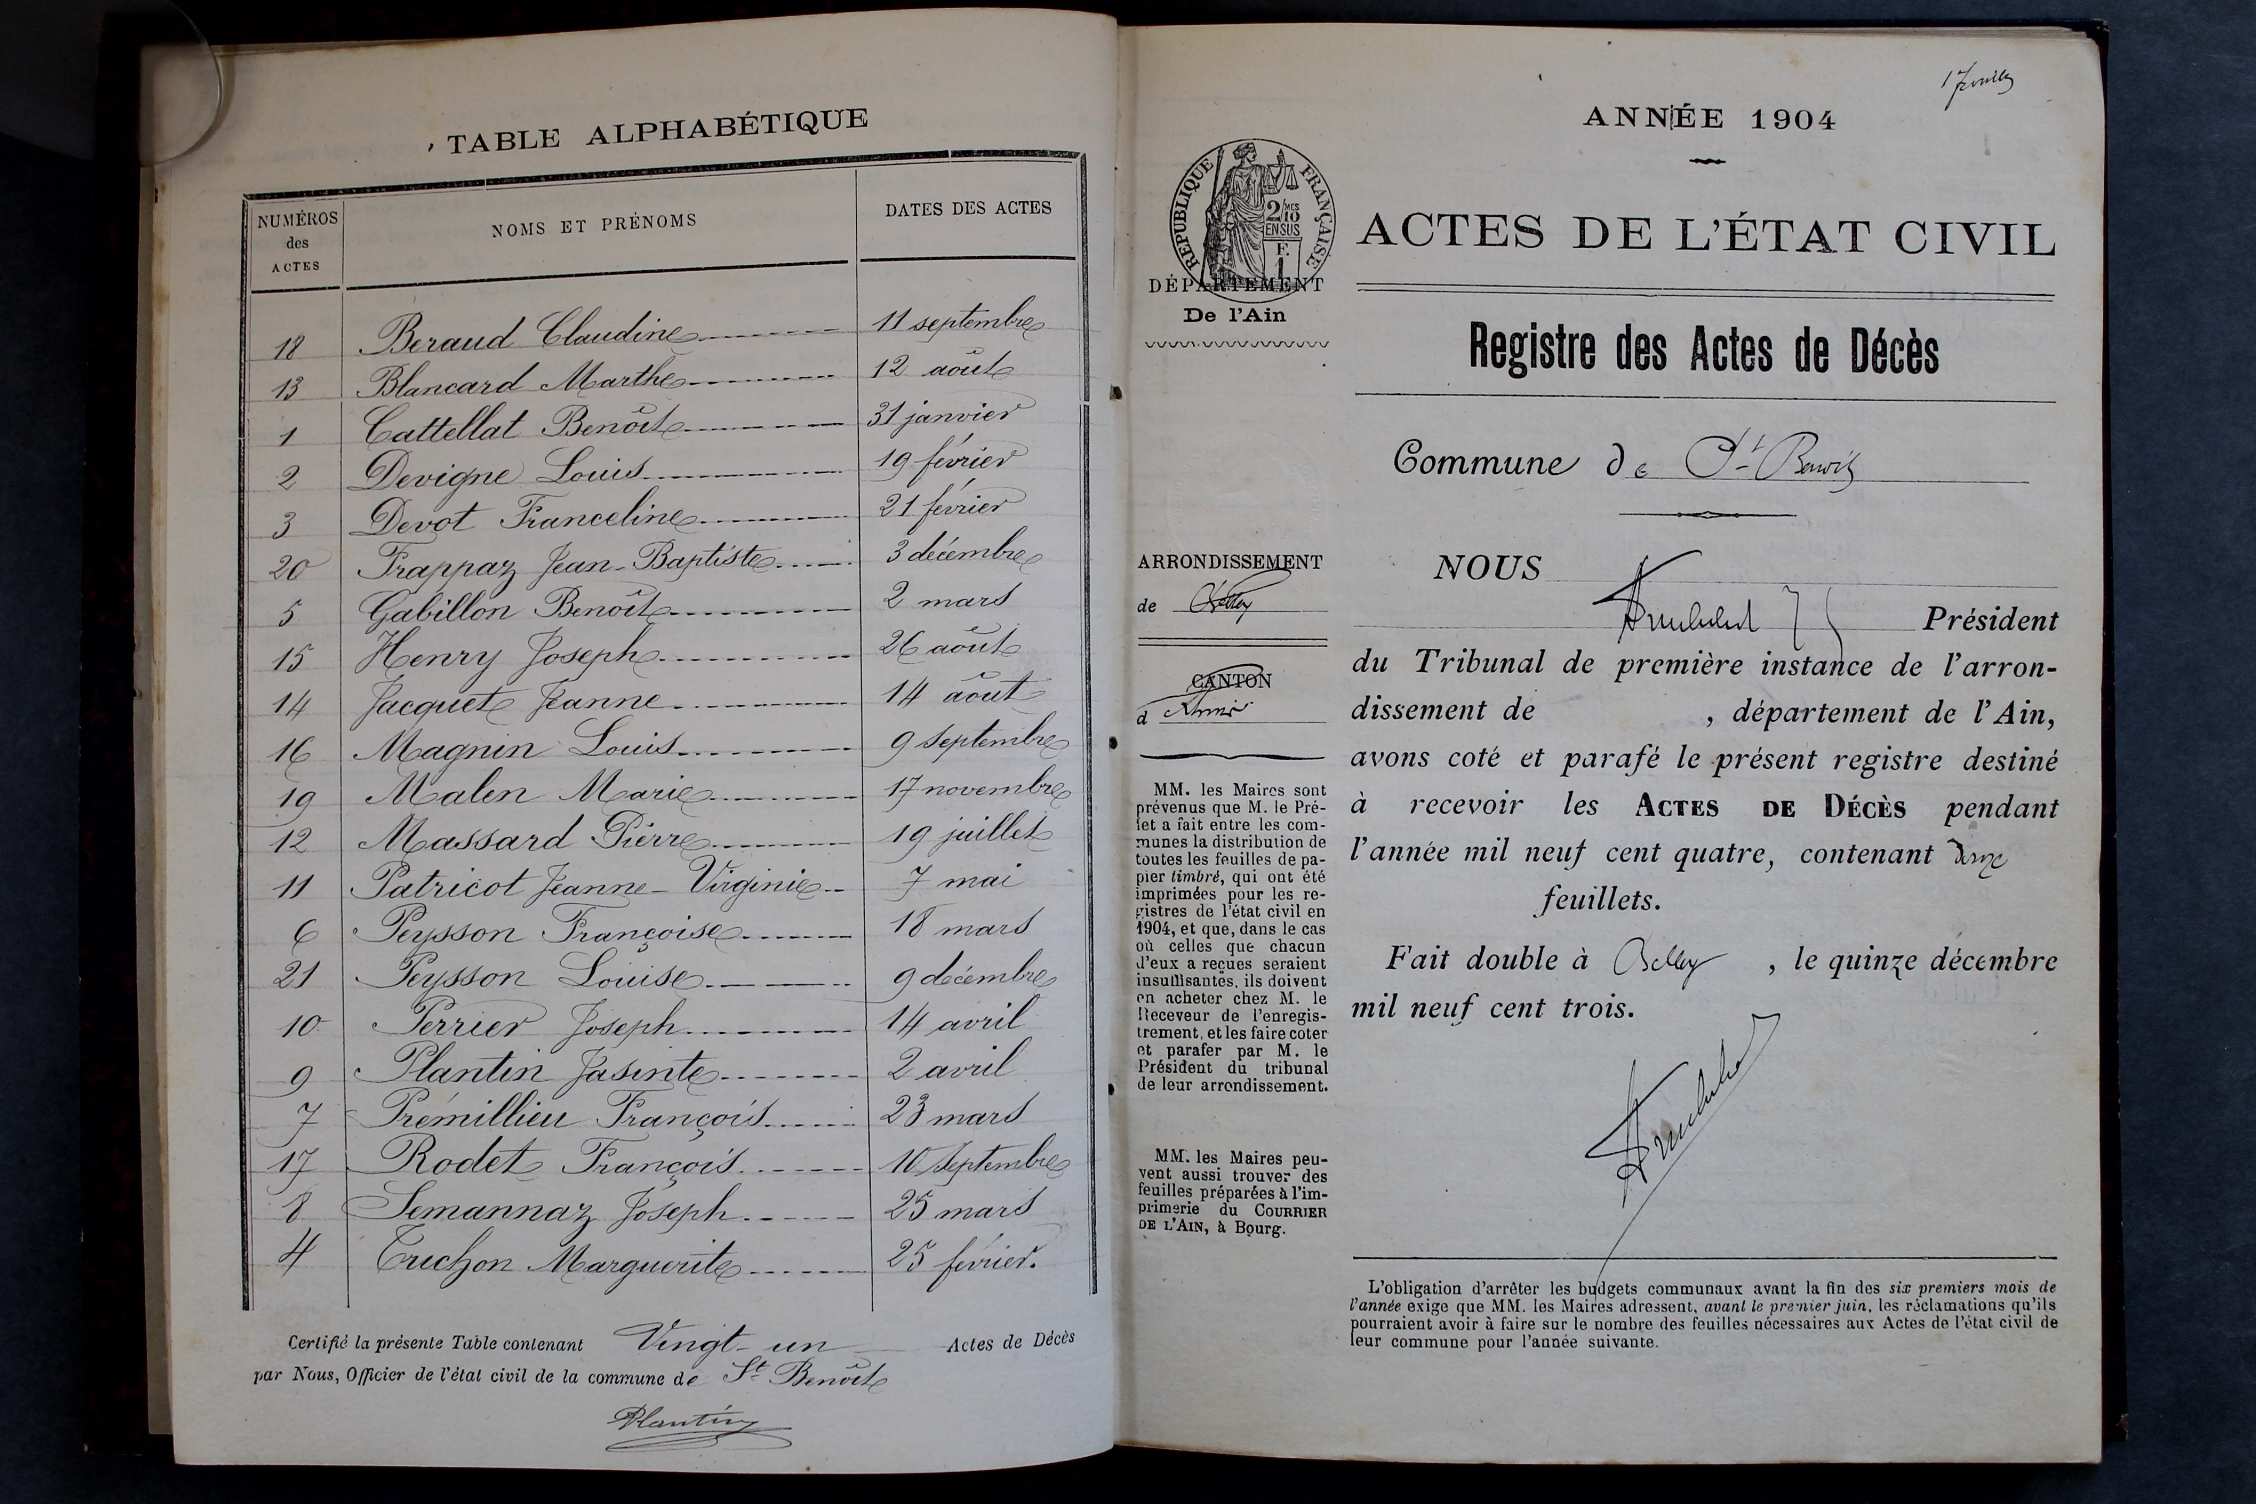 TABLE ALPHABÉTIQUE
NUMÉROS des ACTES NOMS ET PRÉNOMS DATES DES ACTES
18 Beraud Claudine 11 septembre
13 Blancard Marthe 12 août
1 Cattellat Benoît 31 janvier
2 Devigne Louis 19 février
3 Devot Franceline 21 février
20 Frappaz Jean-Baptiste 3 décembre
5 Gabillon Benoît 2 mars
15 Henry Joseph 26 août
14 Jacquet Jeanne 14 août
16 Magnin Louis 9 septembre
19 Malen Marie 17 novembre
12 Massard Pierre 19 juillet
11 Patricot Jeanne-Virginie 7 mai
6 Peysson Françoise 18 mars
21 Peysson Louise 9 décembre
10 Perrier Joseph 14 avril
9 Plantin Jasinte 2 avril
7 Prémillieu François 23 mars
17 Rodet François 10 septembre
8 Semannaz Joseph 25 mars
4 Truchon Marguerite 25 février.
Certifié la présente Table contenant Vingt-un Actes de Décès
par Nous, Officier de l'état civil de la commune de St Benoît
Plantin
ANNÉE 1904
RÉPUBLIQUE FRANÇAISE
2/10 MES
EN SUS
F. 1
ACTES DE L'ÉTAT CIVIL
DÉPARTEMENT
De l'Ain
Registre des Actes de Décès
Commune de St Benoît
ARRONDISSEMENT
de Belley
CANTON
d
MM. les Maires sont
prévenus que M. le Pré-
fet a fait entre les com-
munes la distribution de
toutes les feuilles de pa-
pier timbré, qui ont été
imprimées pour les re-
gistres de l'état civil en
1904, et que, dans le cas
où celles que chacun
d'eux a reçues seraient
insuffisantes, ils doivent
en acheter chez M. le
Receveur de l'enregis-
trement, et les faire coter
et parafer par M. le
Président du tribunal
de leur arrondissement.
MM. les Maires peu-
vent aussi trouver des
feuilles préparées à l'im-
primerie du COURRIER
DE L'AIN, à Bourg.
NOUS
Président
du Tribunal de première instance de l'arron-
dissement de , département de l'Ain,
avons coté et parafé le présent registre destiné
à recevoir les ACTES DE DÉCÈS pendant
l'année mil neuf cent quatre, contenant
feuillets.
Fait double à Belley, le quinze décembre
mil neuf cent trois.
L'obligation d'arrêter les budgets communaux avant la fin des six premiers mois de
l'année exige que MM. les Maires adressent, avant le premier juin, les réclamations qu'ils
pourraient avoir à faire sur le nombre des feuilles nécessaires aux Actes de l'état civil de
leur commune pour l'année suivante.